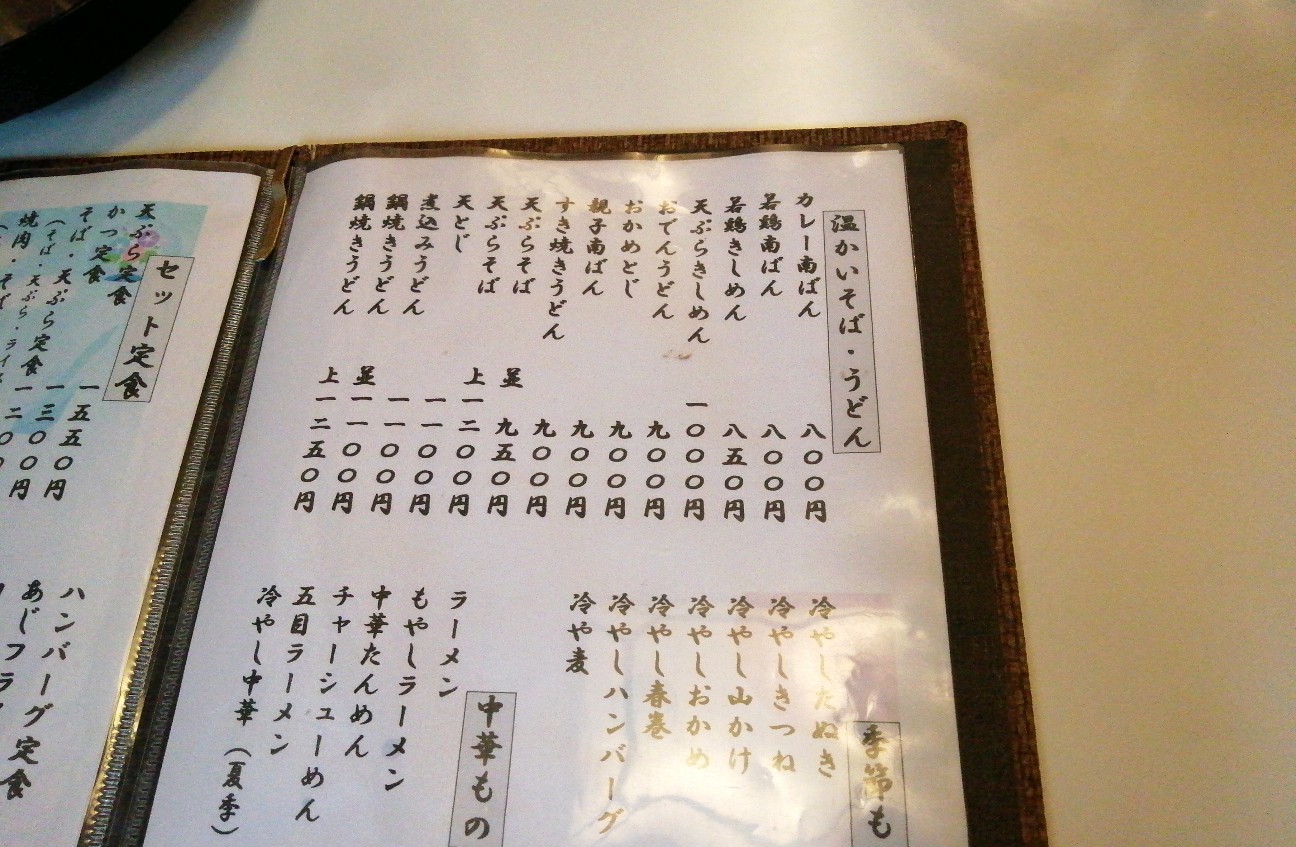 温かいそば・うどん
カレー南ばん 八〇〇円
若鶏南ばん 八〇〇円
若鶏きしめん 八五〇円
天ぷらきしめん 一〇〇〇円
おでんうどん 九〇〇円
おかめとじ 九〇〇円
親子南ばん 九〇〇円
すき焼きうどん 九〇〇円
天ぷらそば 並 九五〇円
天ぷらそば 上 一二〇〇円
天とじ 一一〇〇円
煮込みうどん 一一〇〇円
鍋焼きうどん 並 一一〇〇円
鍋焼きうどん 上 一二五〇円
季節も
冷やしたぬき
冷やしきつね
冷やし山かけ
冷やしおかめ
冷やし春巻
冷やしハンバーグ
冷や麦
中華もの
ラーメン
もやしラーメン
中華たんめん
チャーシューめん
五目ラーメン
冷やし中華（夏季）
セット定食
天ぷら定食 一五五〇円
かつ定食 一三〇〇円
そば・天ぷら定食 一二〇〇
（そば 天ぷら・ライ
焼肉・そば
ハンバーグ定食
あじフラ